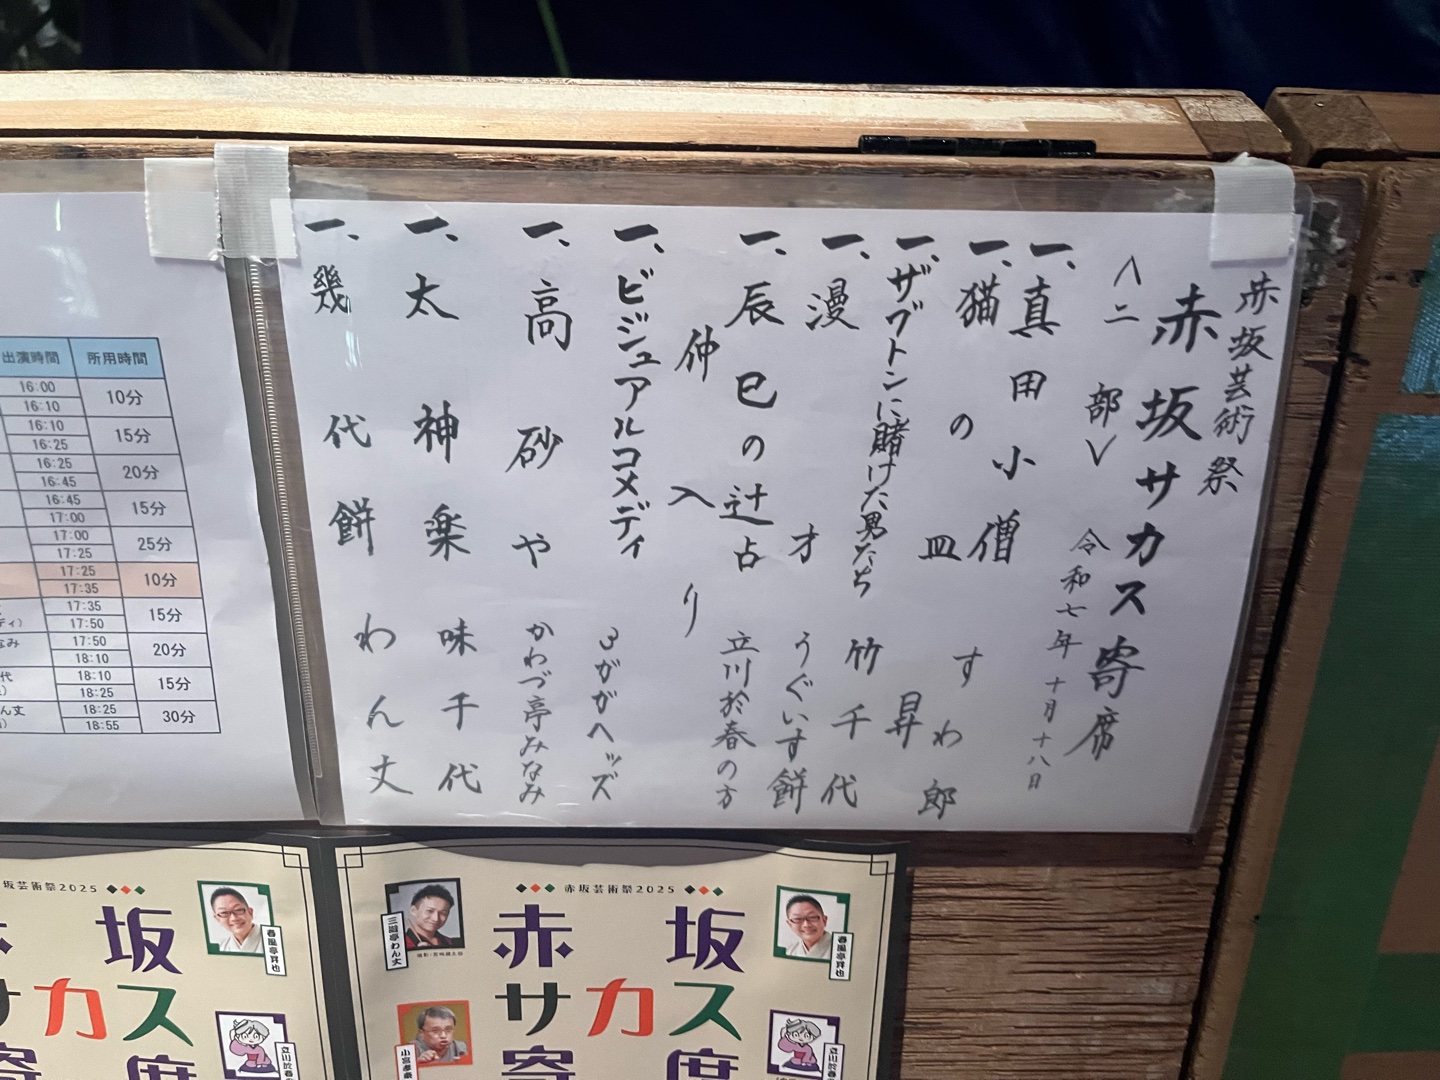 赤坂芸術祭
赤坂サカス寄席
〈二部〉 令和七年十月十八日
一、真田小僧 すわ郎
一、猫の皿 昇
一、ザブトンに賭けた男たち 竹千代
一、漫才 うぐいす餅
一、辰巳の辻占 立川於春の方
仲入り
一、ビジュアルコメディ 3ガガヘッズ
一、高砂や かわづ亭みなみ
一、太神楽 味千代
一、幾代餅 わん丈
出演時間 所用時間
16:00
16:10
10分
16:10
16:25
15分
16:25
16:45
20分
16:45
17:00
15分
17:00
17:25
25分
17:25
17:35
10分
17:35
17:50
15分
ティ）
なみ
17:50
18:10
20分
代
18:10
18:25
15分
ん丈
18:25
18:55
30分
坂芸術祭2025
坂
サカス
寄席
春風亭昇也
赤坂芸術祭2025
三遊亭わん丈
赤坂
春風亭昇也
サカス
小宮孝泰
寄席